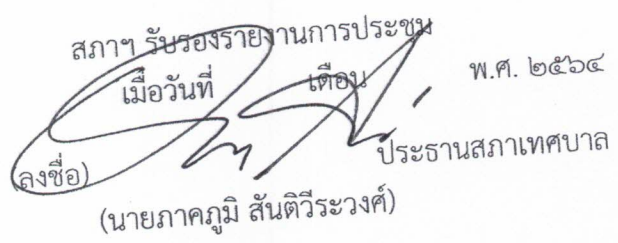 สภาฯ รับรองรายงานการประชุม
เมื่อวันที่ เดือน พ.ศ. ๒๕๖๔
(ลงชื่อ) ประธานสภาเทศบาล
(นายภาคภูมิ สันติวีระวงศ์)